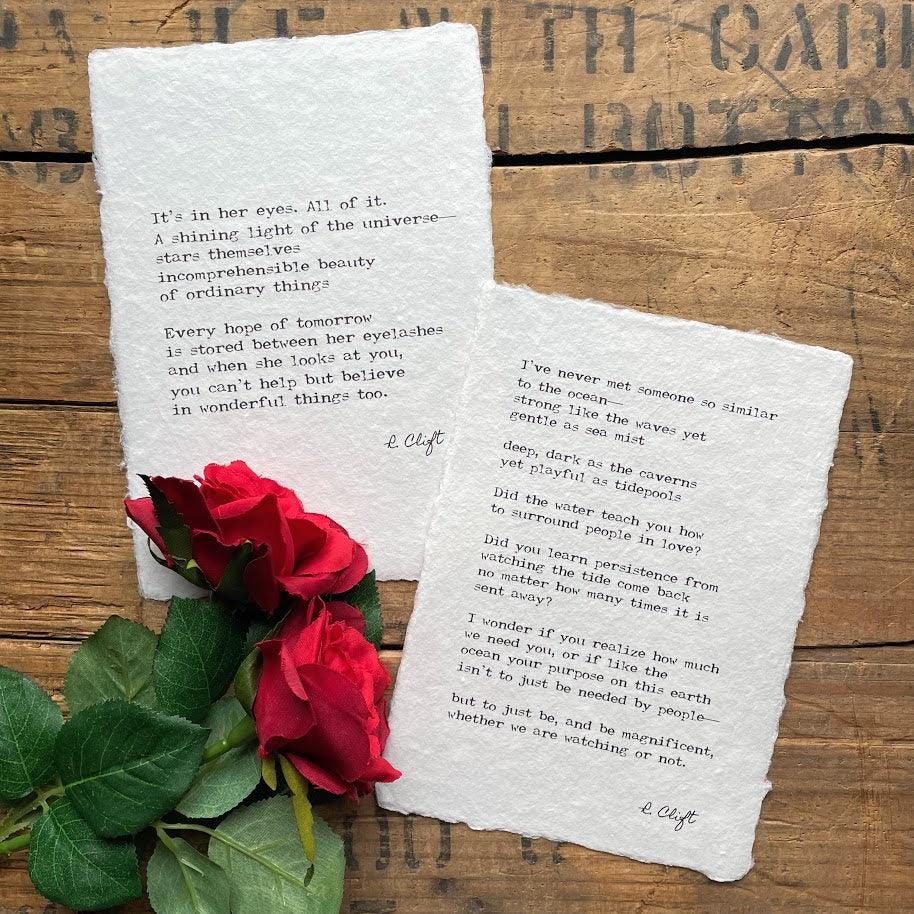 It's in her eyes. All of it.
A shining light of the universe—
stars themselves
incomprehensible beauty
of ordinary things
Every hope of tomorrow
is stored between her eyelashes
and when she looks at you,
you can't help but believe
in wonderful things too.
R. Clift
I've never met someone so similar
to the ocean—
strong like the waves yet
gentle as sea mist
deep, dark as the caverns
yet playful as tidepools
Did the water teach you how
to surround people in love?
Did you learn persistence from
watching the tide come back
no matter how many times it is
sent away?
I wonder if you realize how much
we need you, or if like the
ocean your purpose on this earth
isn't to just be needed by people—
but to just be, and be magnificent,
whether we are watching or not.
R. Clift